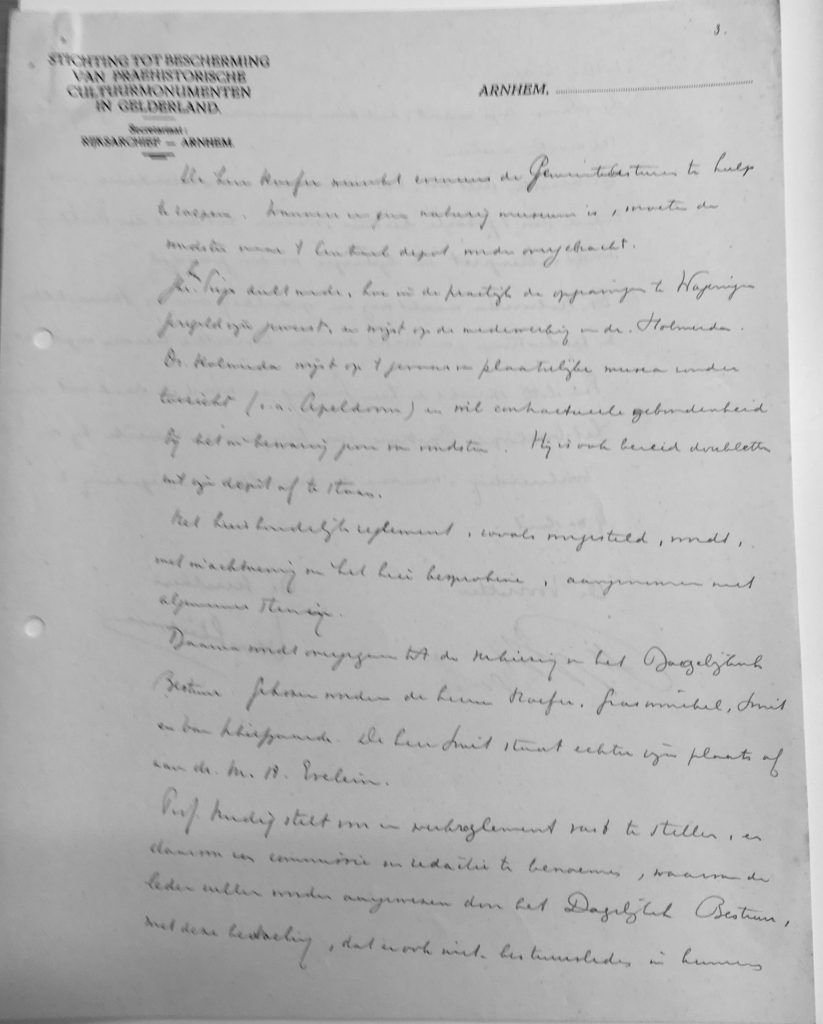 3.
STICHTING TOT BESCHERMING
VAN PRAEHISTORISCHE
CULTUURMONUMENTEN
IN GELDERLAND.
ARNHEM,
Secretariaat:
RIJKSARCHIEF — ARNHEM.
De heer Hoefer wenscht eveneens de Gemeentebesturen te hulp
te roepen. Wanneer er geen naburig museum is, moeten de
vondsten naar 't Centraal depot worden overgebracht.
deelt mede, hoe in de praktijk de opgravingen te Wageningen
geregeld zijn geweest, en wijst op de medewerking van dr. Holwerda.
Dr. Holwerda wijst op 't gevaar van plaatselijke musea zonder
toezicht (v.a. Apeldoorn) en wil contractueele gebondenheid
bij het in bewaring geven van vondsten. Hij is ook bereid doubletten
uit zijn depôt af te staan.
Het huishoudelijk reglement, zooals vastgesteld, wordt,
met inachtneming van het hier besprokene, aangenomen met
algemeene stemmen.
Daarna wordt overgegaan tot de verkiezing van het Dagelijksch
Bestuur. Gekozen worden de heeren Hoefer, Graswinckel, Smit
en van Schilfgaarde. De heer Smit staat echter zijn plaats af
aan dr. M. A. Evelein.
Prof. stelt voor een werkreglement vast te stellen, en
daarom een commissie van redactie te benoemen, waarvan de
leden zullen worden aangewezen door het Dagelijksch Bestuur,
met deze bedoeling, dat er ook niet-bestuursleden in kunnen